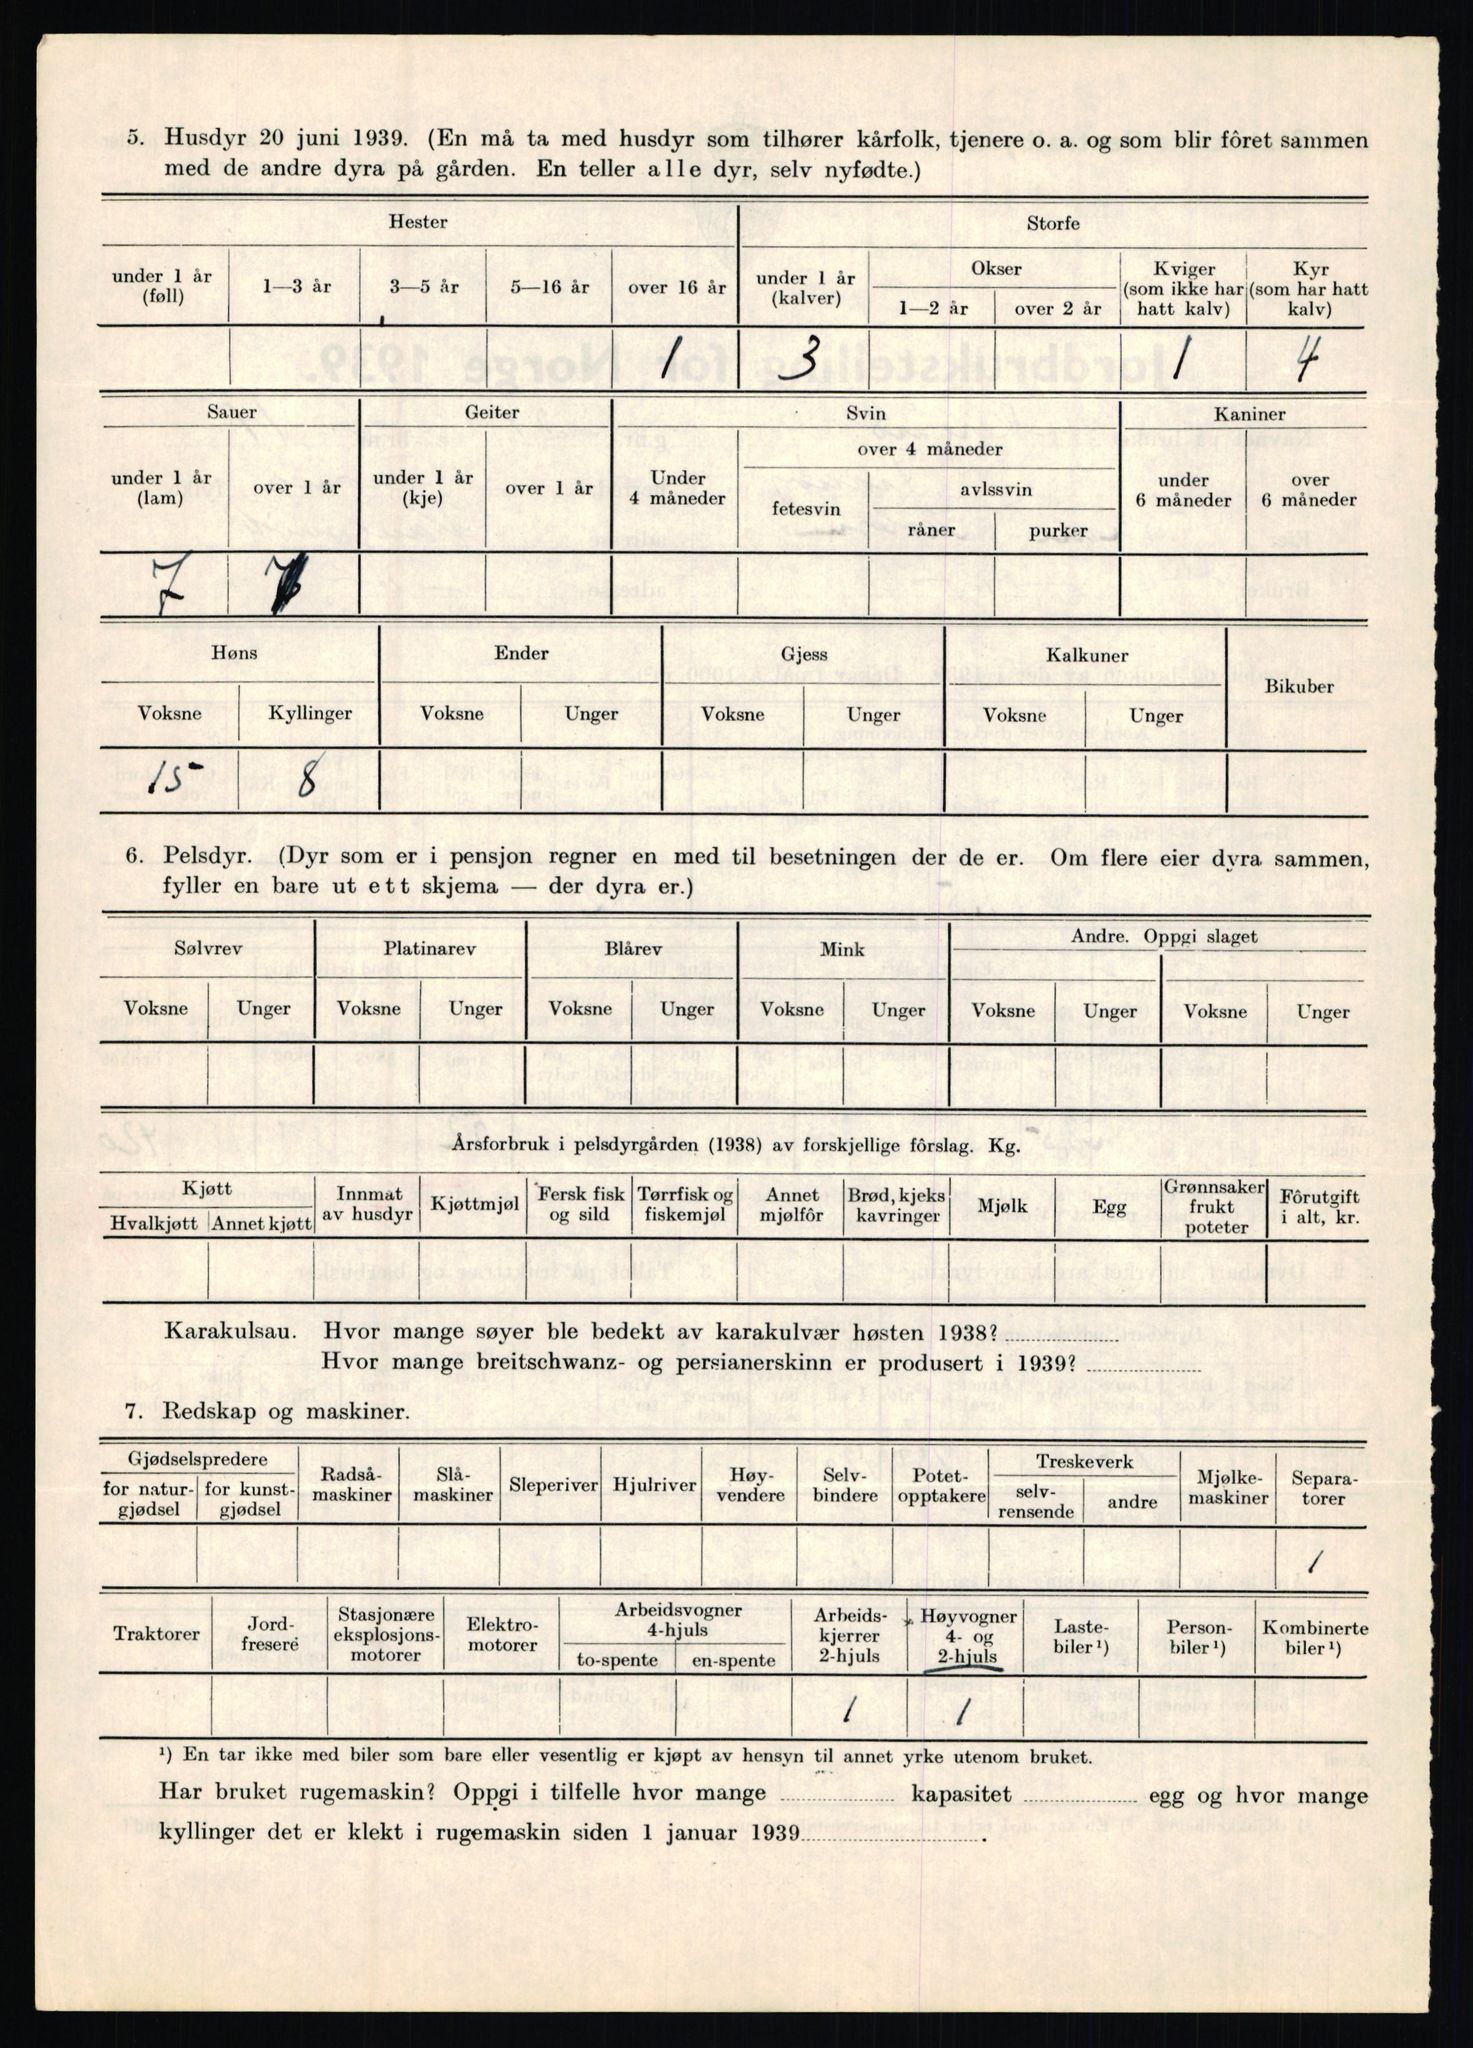 5. Husdyr 20 juni 1939. (En må ta med husdyr som tilhører kårfolk, tjenere o. a. og som blir fôret sammen
med de andre dyra på gården. En teller alle dyr, selv nyfødte.)
Hester Storfe
under 1 år (føll) 1—3 år 3—5 år 5—16 år over 16 år under 1 år (kalver) Okser 1—2 år over 2 år Kviger (som ikke har hatt kalv) Kyr (som har hatt kalv)
1 3 1 4
Sauer Geiter Svin Kaniner
under 1 år (lam) over 1 år under 1 år (kje) over 1 år Under 4 måneder over 4 måneder fetesvin avlssvin råner purker under 6 måneder over 6 måneder
7
Høns Ender Gjess Kalkuner Bikuber
Voksne Kyllinger Voksne Unger Voksne Unger Voksne Unger
15 8
6. Pelsdyr. (Dyr som er i pensjon regner en med til besetningen der de er. Om flere eier dyra sammen,
fyller en bare ut ett skjema — der dyra er.)
Sølvrev Platinarev Blårev Mink Andre. Oppgi slaget
Voksne Unger Voksne Unger Voksne Unger Voksne Unger Voksne Unger Voksne Unger
Årsforbruk i pelsdyrgården (1938) av forskjellige fôrslag. Kg.
Kjøtt Hvalkjøtt Annet kjøtt Innmat av husdyr Kjøttmjøl Fersk fisk og sild Tørrfisk og fiskemjøl Annet mjølfôr Brød, kjeks kavringer Mjølk Egg Grønnsaker frukt poteter Fôrutgift i alt, kr.
Karakulsau. Hvor mange søyer ble bedekt av karakulvær høsten 1938?
Hvor mange breitschwanz- og persianerskinn er produsert i 1939?
7. Redskap og maskiner.
Gjødselspredere for natur-gjødsel for kunst-gjødsel Radså-maskiner Slå-maskiner Sleperiver Hjulriver Høy-vendere Selv-bindere Potet-opptakere Treskeverk selv-rensende andre Mjølke-maskiner Separa-torer
1
Traktorer Jord-fresere Stasjonære eksplosjons-motorer Elektro-motorer Arbeidsvogner 4-hjuls to-spente en-spente Arbeids-kjerrer 2-hjuls Høyvogner 4- og 2-hjuls Laste-biler ¹) Person-biler ¹) Kombinerte biler ¹)
1 1
¹) En tar ikke med biler som bare eller vesentlig er kjøpt av hensyn til annet yrke utenom bruket.
Har bruket rugemaskin? Oppgi i tilfelle hvor mange kapasitet egg og hvor mange
kyllinger det er klekt i rugemaskin siden 1 januar 1939 .